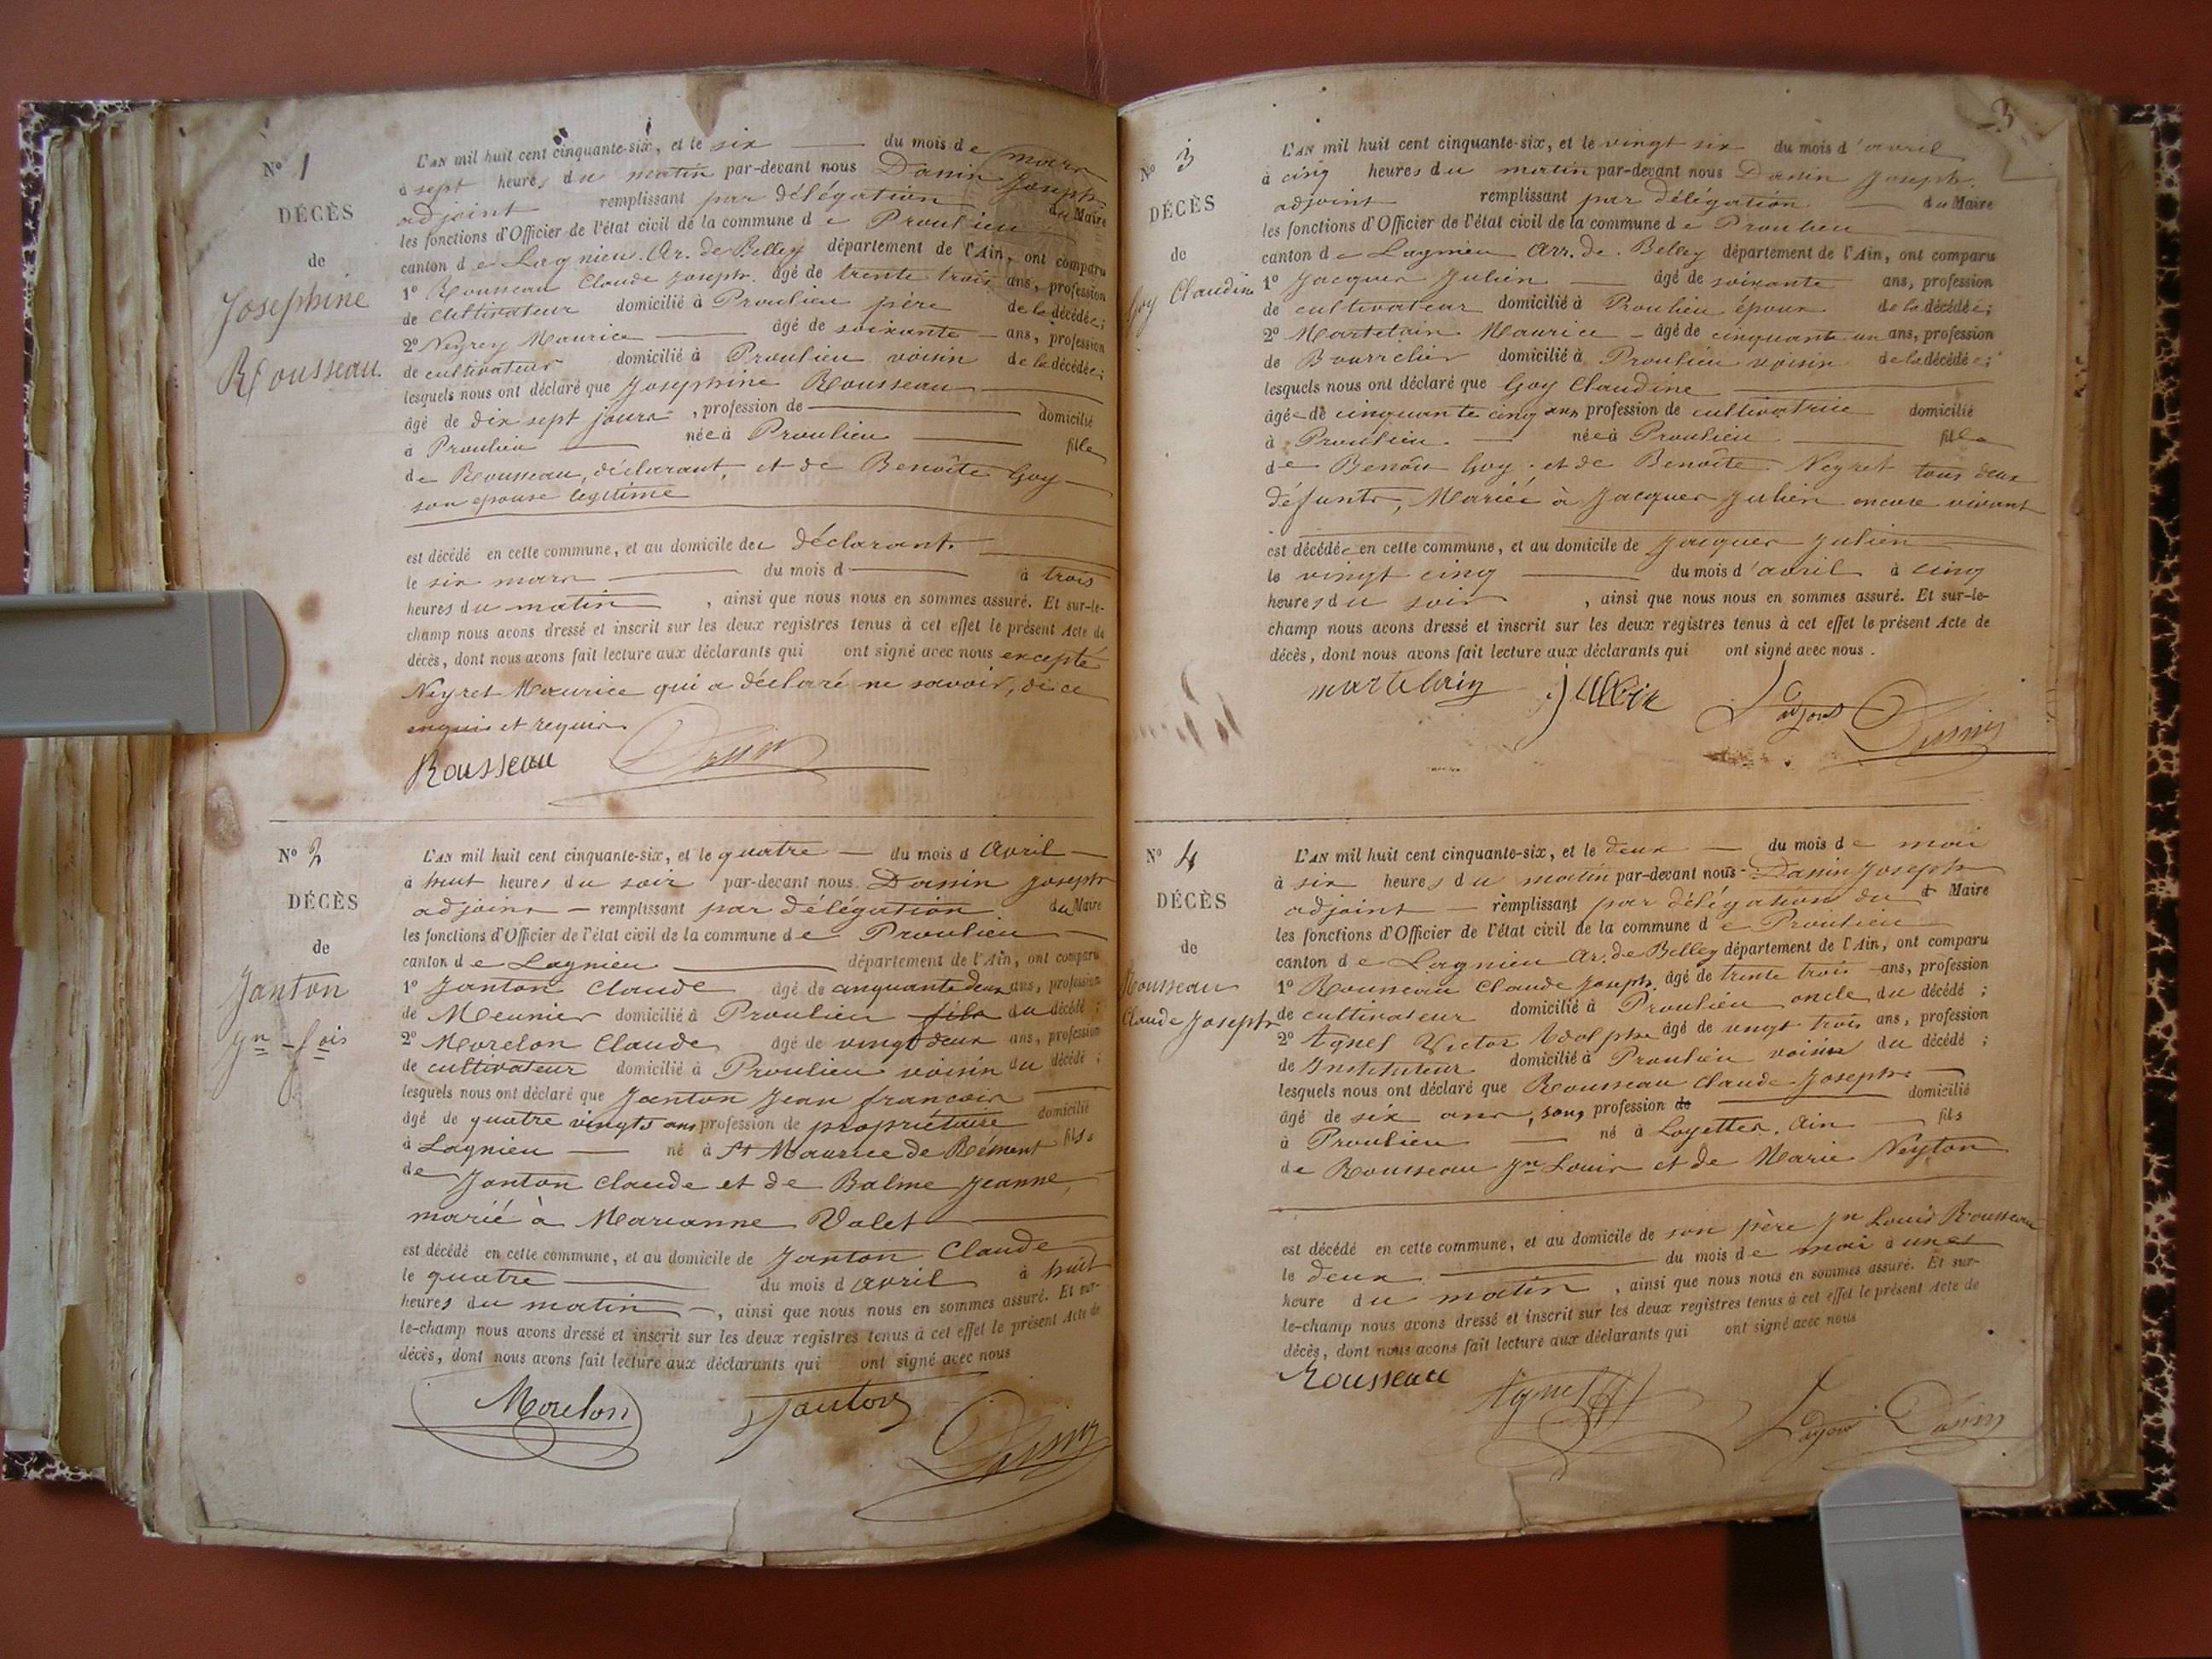 Nº 1
DÉCÈS
de
Josephine
Rousseau
L'AN mil huit cent cinquante-six, et le six du mois de mars
à sept heures du matin par-devant nous Dassin Joseph
adjoint remplissant par délégation du Maire
les fonctions d'Officier de l'état civil de la commune de Proulieu
canton de Lagnieu. Ar. de Belley département de l'Ain, ont comparu
1º Rousseau Claude Joseph. âgé de trente trois ans, profession
de cultivateur domicilié à Proulieu père de la décédée;
2º Neyrey Maurice âgé de soixante ans, profession
de cultivateur domicilié à Proulieu voisin de la décédée;
lesquels nous ont déclaré que Josephine Rousseau
âgé de dix sept jours, profession de domicilié
à Proulieu née à Proulieu fille
de Rousseau, déclarant, et de Benoîte Goy
son epouse legitime
est décédé en cette commune, et au domicile du déclarant.
le six mars du mois d à trois
heures du matin, ainsi que nous nous en sommes assuré. Et sur-le-
champ nous avons dressé et inscrit sur les deux registres tenus à cet effet le présent Acte de
décès, dont nous avons fait lecture aux déclarants qui ont signé avec nous excepté
Neyret Maurice qui a déclaré ne savoir, de ce
enquis et requis
Rousseau Dassin
Nº 2
DÉCÈS
de
Janton
Jn-fois
L'AN mil huit cent cinquante-six, et le quatre du mois d Avril
à huit heures du soir par-devant nous Dassin Joseph
adjoint remplissant par délégation du Maire
les fonctions d'Officier de l'état civil de la commune de Proulieu
canton de Lagnieu département de l'Ain, ont comparu
1º Janton Claude âgé de cinquante deux ans, profession
de Meunier domicilié à Proulieu fils du décédé;
2º Morelon Claude âgé de vingt deux ans, profession
de cultivateur domicilié à Proulieu voisin du décédé;
lesquels nous ont déclaré que Janton Jean francois
âgé de quatre vingts ans profession de propriétaire domicilié
à Lagnieu né à St Maurice de Rément fils
de Janton Claude et de Balme Jeanne,
marié à Marianne Valet
est décédé en cette commune, et au domicile de Janton Claude
le quatre du mois d avril à huit
heures du matin, ainsi que nous nous en sommes assuré. Et sur-
le-champ nous avons dressé et inscrit sur les deux registres tenus à cet effet le présent Acte de
décès, dont nous avons fait lecture aux déclarants qui ont signé avec nous
Morelon Janton Dassin
3
Nº 3
DÉCÈS
de
Goy Claudine
L'AN mil huit cent cinquante-six, et le vingt six du mois d'avril
à cinq heures du matin par-devant nous Dassin Joseph.
adjoint remplissant par délégation du Maire
les fonctions d'Officier de l'état civil de la commune de Proulieu
canton de Lagnieu Arr. de Belley département de l'Ain, ont comparu
1º Jacques Julien âgé de soixante ans, profession
de cultivateur domicilié à Proulieu époux de la décédée;
2º Martelain Maurice âgé de cinquante un ans, profession
de Bourrelier domicilié à Proulieu voisin de la décédée;
lesquels nous ont déclaré que Goy Claudine
âgée de cinquante cinq ans profession de cultivatrice domicilié
à Proulieu. née à Proulieu fille
de Benôit Goy et de Benoîte Neyret tous deux
défunts, Mariée à Jacques Julien encore vivant
est décédée en cette commune, et au domicile de Jacques Julien
le vingt cinq du mois d'avril à cinq
heures du soir, ainsi que nous nous en sommes assuré. Et sur-le-
champ nous avons dressé et inscrit sur les deux registres tenus à cet effet le présent Acte de
décès, dont nous avons fait lecture aux déclarants qui ont signé avec nous.
martelain julien L'adjoint Dassin
Nº 4
DÉCÈS
de
Rousseau
Claude Joseph
L'AN mil huit cent cinquante-six, et le deux du mois de mai
à six heures du matin par-devant nous Dassin Joseph
adjoint remplissant par délégation du Maire
les fonctions d'Officier de l'état civil de la commune de Proulieu
canton de Lagnieu Ar. de Belley département de l'Ain, ont comparu
1º Rousseau Claude Joseph. âgé de trente trois ans, profession
de cultivateur domicilié à Proulieu oncle du décédé;
2º Agnel Victor Adolphe âgé de vingt trois ans, profession
de Instituteur domicilié à Proulieu voisin du décédé;
lesquels nous ont déclaré que Rousseau Claude Joseph
âgé de six ans, sans profession de domicilié
à Proulieu né à Loyettes. Ain fils
de Rousseau Jn Louis et de Marie Neyton
est décédé en cette commune, et au domicile de son père Jn Louis Rousseau
le deux du mois de mai à une
heure du matin, ainsi que nous nous en sommes assuré. Et sur-
le-champ nous avons dressé et inscrit sur les deux registres tenus à cet effet le présent Acte de
décès, dont nous avons fait lecture aux déclarants qui ont signé avec nous
Rousseau Agnel L'adjoint Dassin